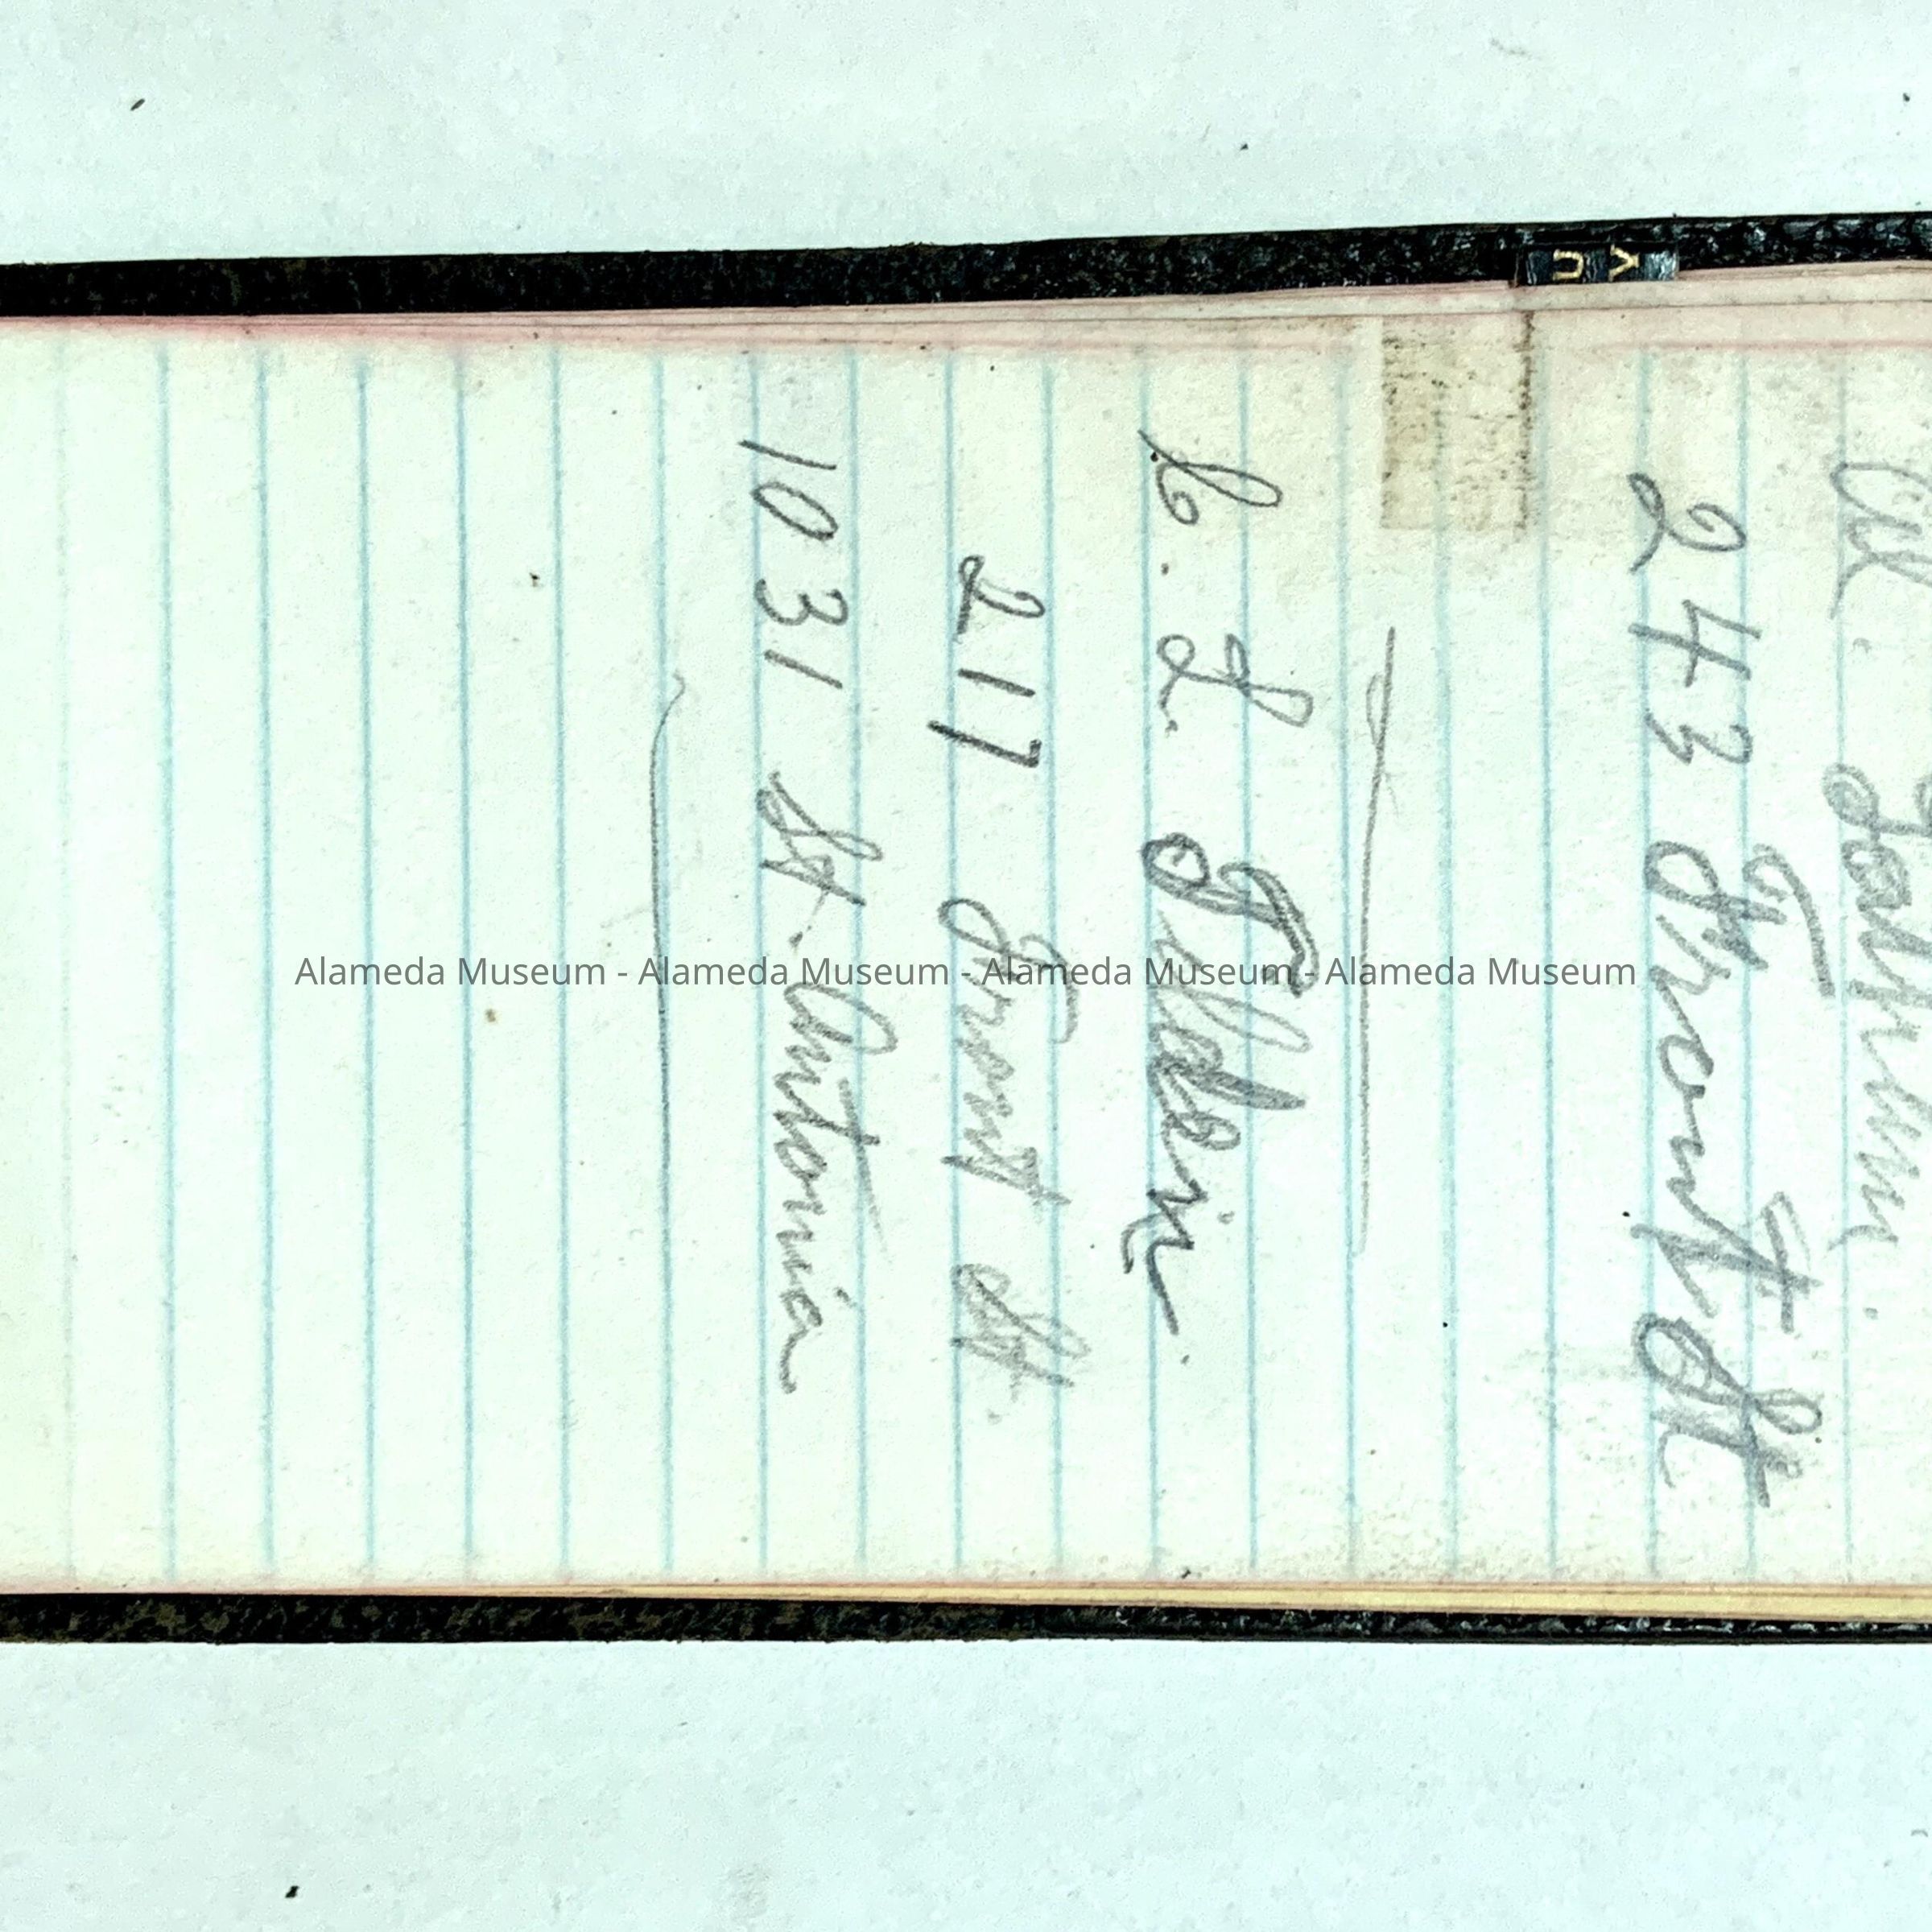 243 Front St
C. L. Tilden.
217 Front St.
1031 St. Antonia
U
Y
Alameda Museum - Alameda Museum - Alameda Museum - Alameda Museum